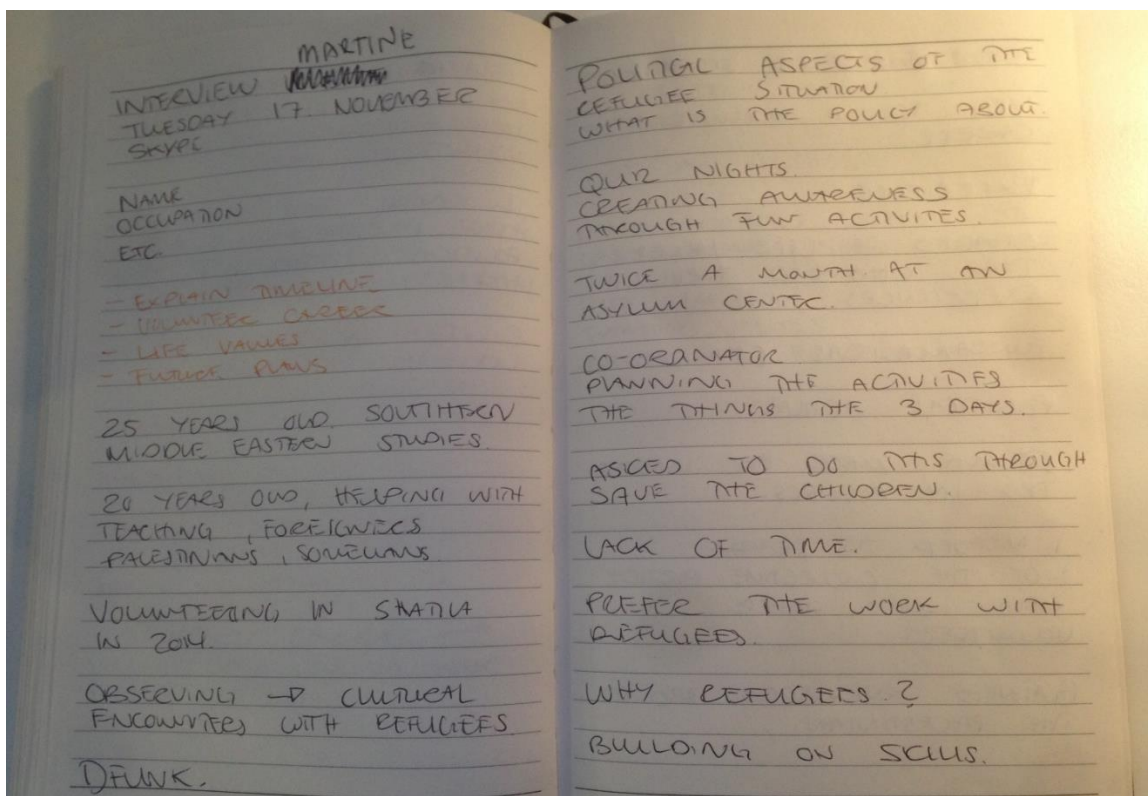 MARTINE
INTERVIEW
TUESDAY 17. NOVEMBER
SKYPE
NAME
OCCUPATION
ETC.
- EXPLAIN TIMELINE
- VOLUNTEER CAREER
- LIFE VALUES
- FUTURE PLANS
25 YEARS OLD. SOUTHTERN
MIDDLE EASTERN STUDIES.
20 YEARS OLD, HELPING WITH
TEACHING, FOREIGNERS
PALESTINIANS, SOMELIANS
VOLUNTEERING IN SHATILA
IN 2014.
OBSERVING → CULTURAL
ENCOUNTERS WITH REFUGEES.
DFUNK.
POLITICAL ASPECTS OF THE
REFUGEE SITUATION
WHAT IS THE POLICY ABOUT.
QUIZ NIGHTS.
CREATING AWARENESS
THROUGH FUN ACTIVITES.
TWICE A MONTH AT AN
ASYLUM CENTER.
CO-ORANATOR
PLANNING THE ACTIVITIES
THE THINGS THE 3 DAYS.
ASKED TO DO THIS THROUGH
SAVE THE CHILDREN.
LACK OF TIME.
PREFER THE WORK WITH
REFUGEES.
WHY REFUGEES?
BUILDING ON SKILLS.